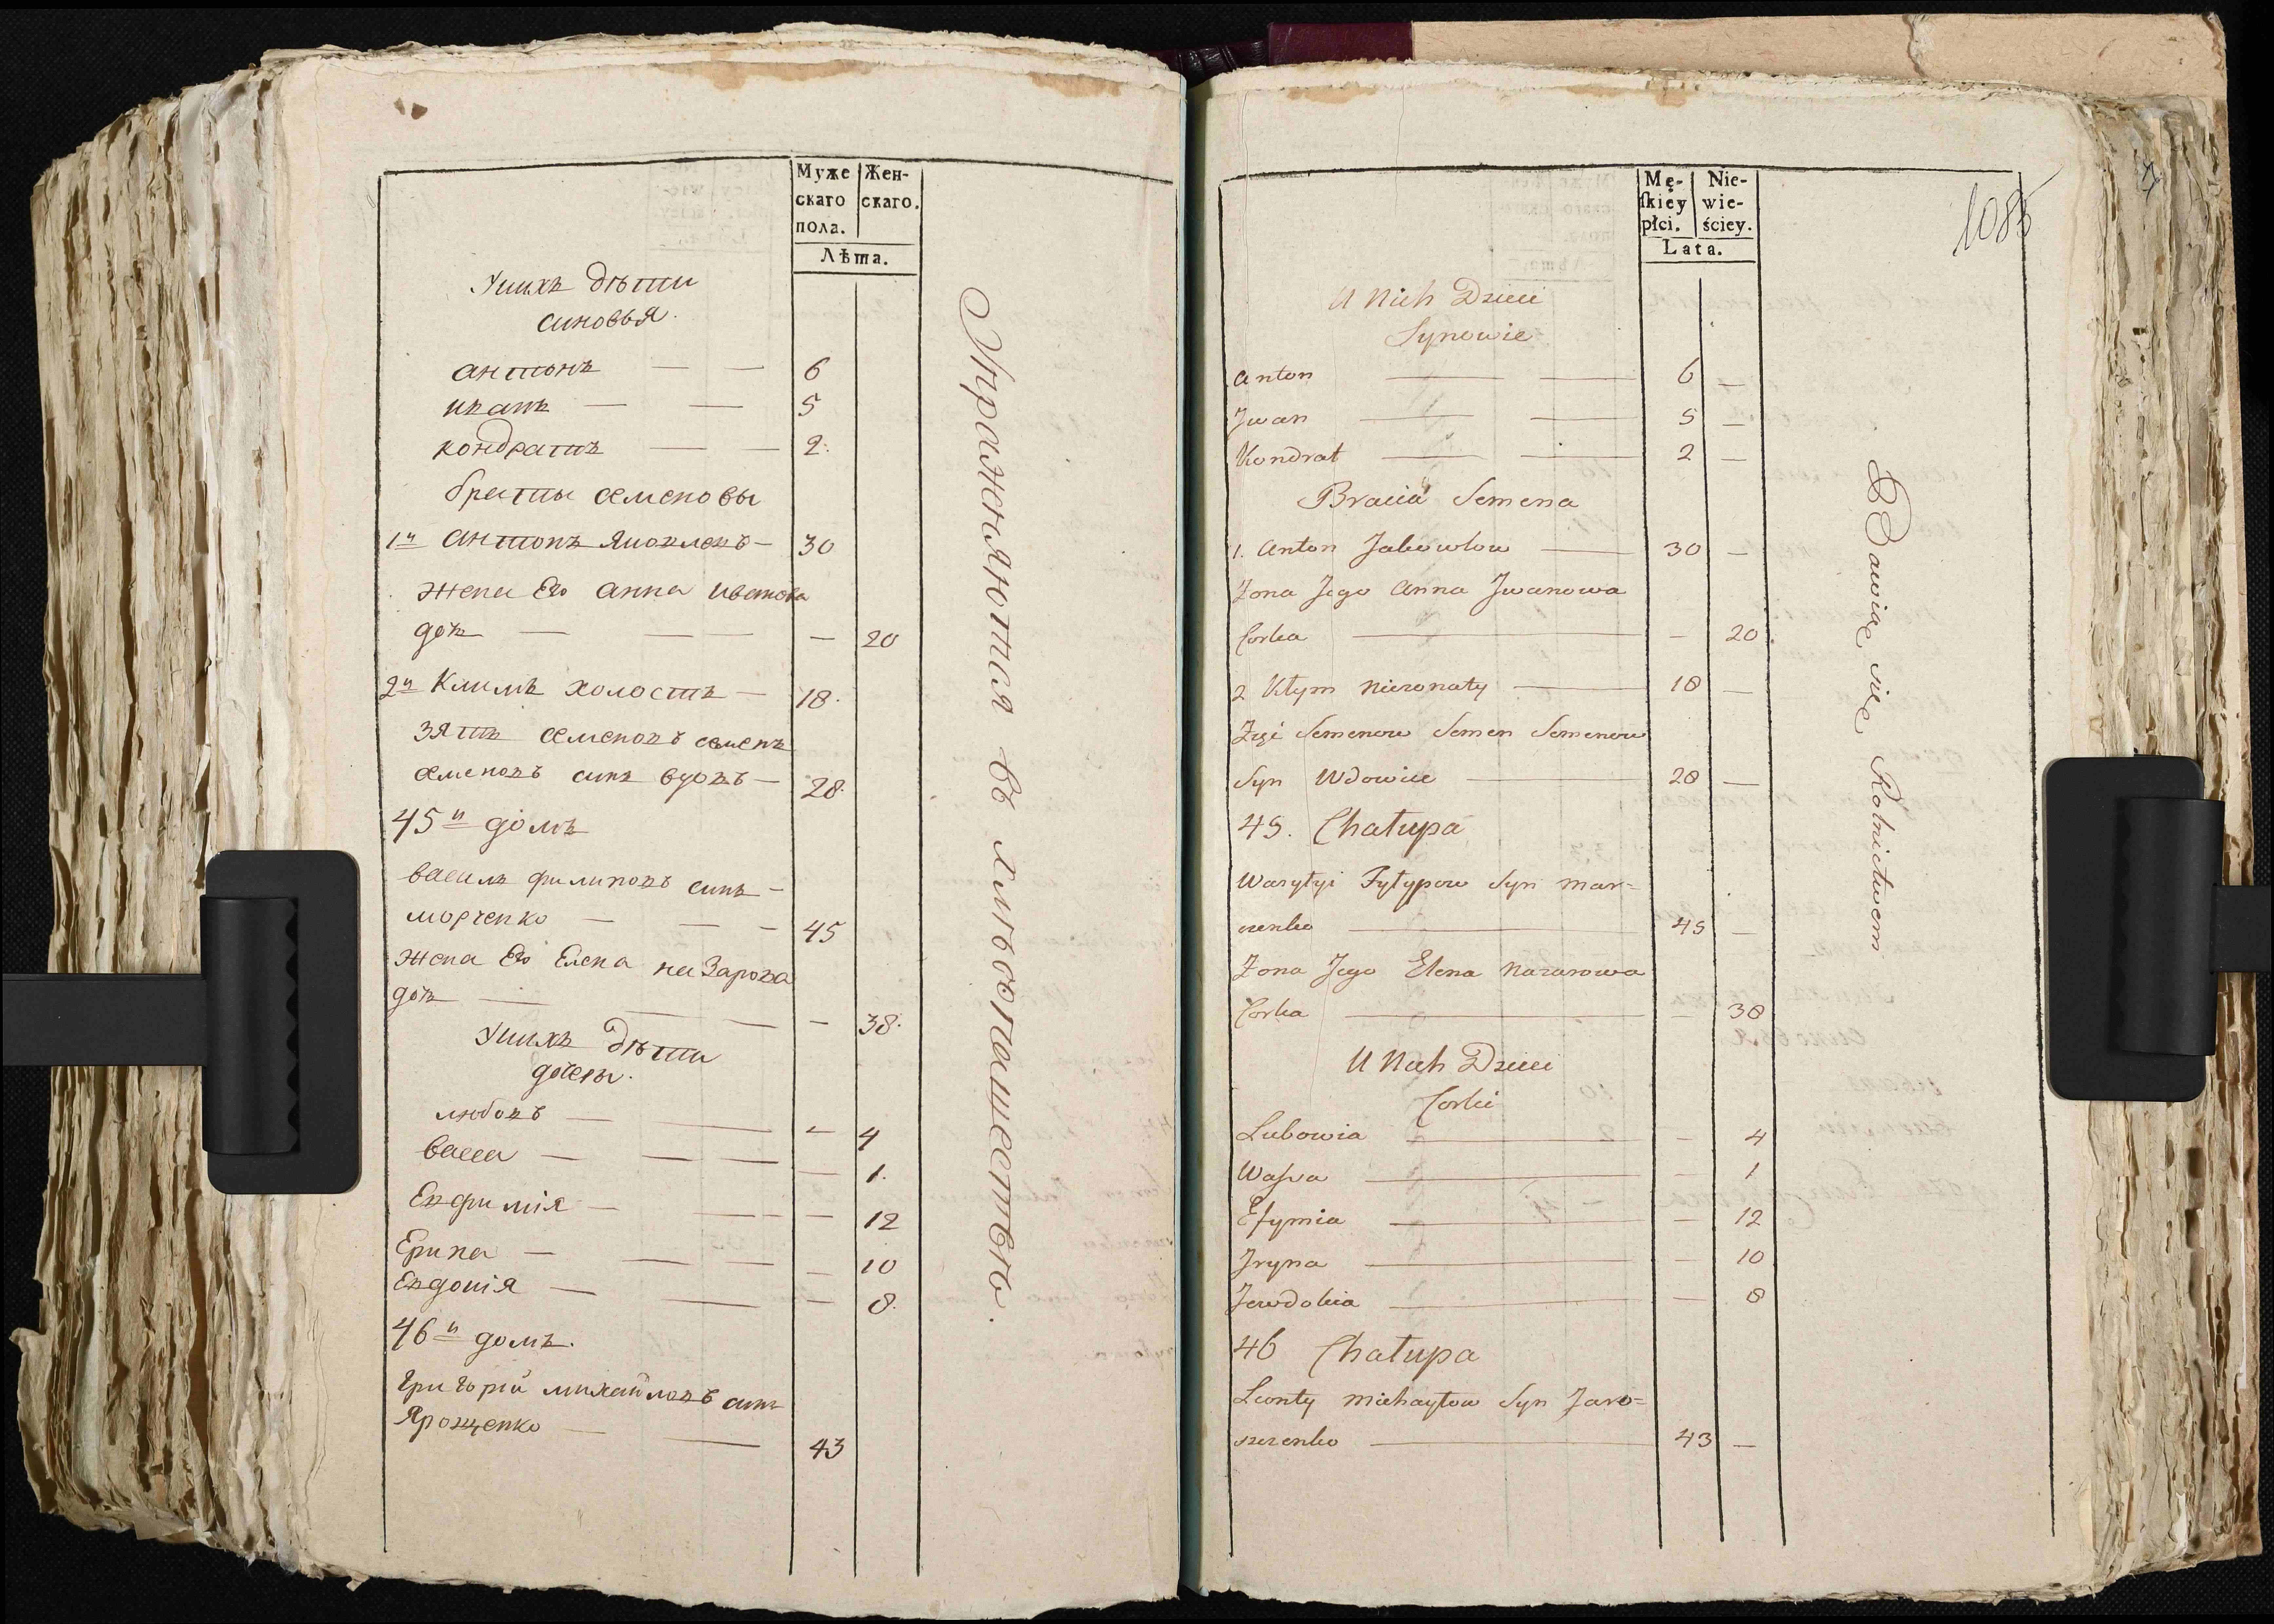 Муже
скаго
пола.
Жен-
скаго.
Лѣта.
Унихъ дѣти
синовья.
антонъ — — 6
иванъ — — 5
кондратъ — — 2.
браты семеновы
1й антонъ яковлевъ — 30
жена Его анна иванова
дочь — — — — 20
2й Климъ холостъ — 18.
зять семеновъ семенъ
семеновъ синъ вдовъ — 28.
45й домъ
василь филиповъ синъ —
морченко — — — 45
жена Его Елена назарова
дочь — — — — 38.
Унихъ дѣти
дочеры.
любовъ — — — 4
васса — — — — 1.
Евфимія — — — — 12
Ерина — — — — 10
Евдокія — — — 8.
46й домъ.
григорій михайловъ синъ
Ярощенко — — 43
Упражняются въ хлѣбопашествѣ.
Mę-
ſkiey
płci.
Nie-
wie-
ściey.
Lata.
1085
U Nich Dzieci
Synowie
Anton — — 6 —
Jwan — — 5 —
Kondrat — — 2 —
Bracia Semena
1. Anton Jakowlow — 30 —
Zona Jego Anna Jwanowa
Corka — — 20
2 Kłym Niezonaty — 18 —
Zięć Semenow Semen Semenow
Syn Wdowiec — 28 —
45. Chałupa
Wasylyi Fylypow Syn Mar=
czenko — 45 —
Zona Jego Elena Nazarowa
Corka — — 38
U Nich Dzieci
Corki
Lubowia — — 4
Waſsa — — 1
Efymia — — 12
Jryna — — 10
Jewdokia — — 8
46 Chałupa
Leonty Michayłow Syn Jaro=
szczenko — 43 —
Bawią się Rolnictwem